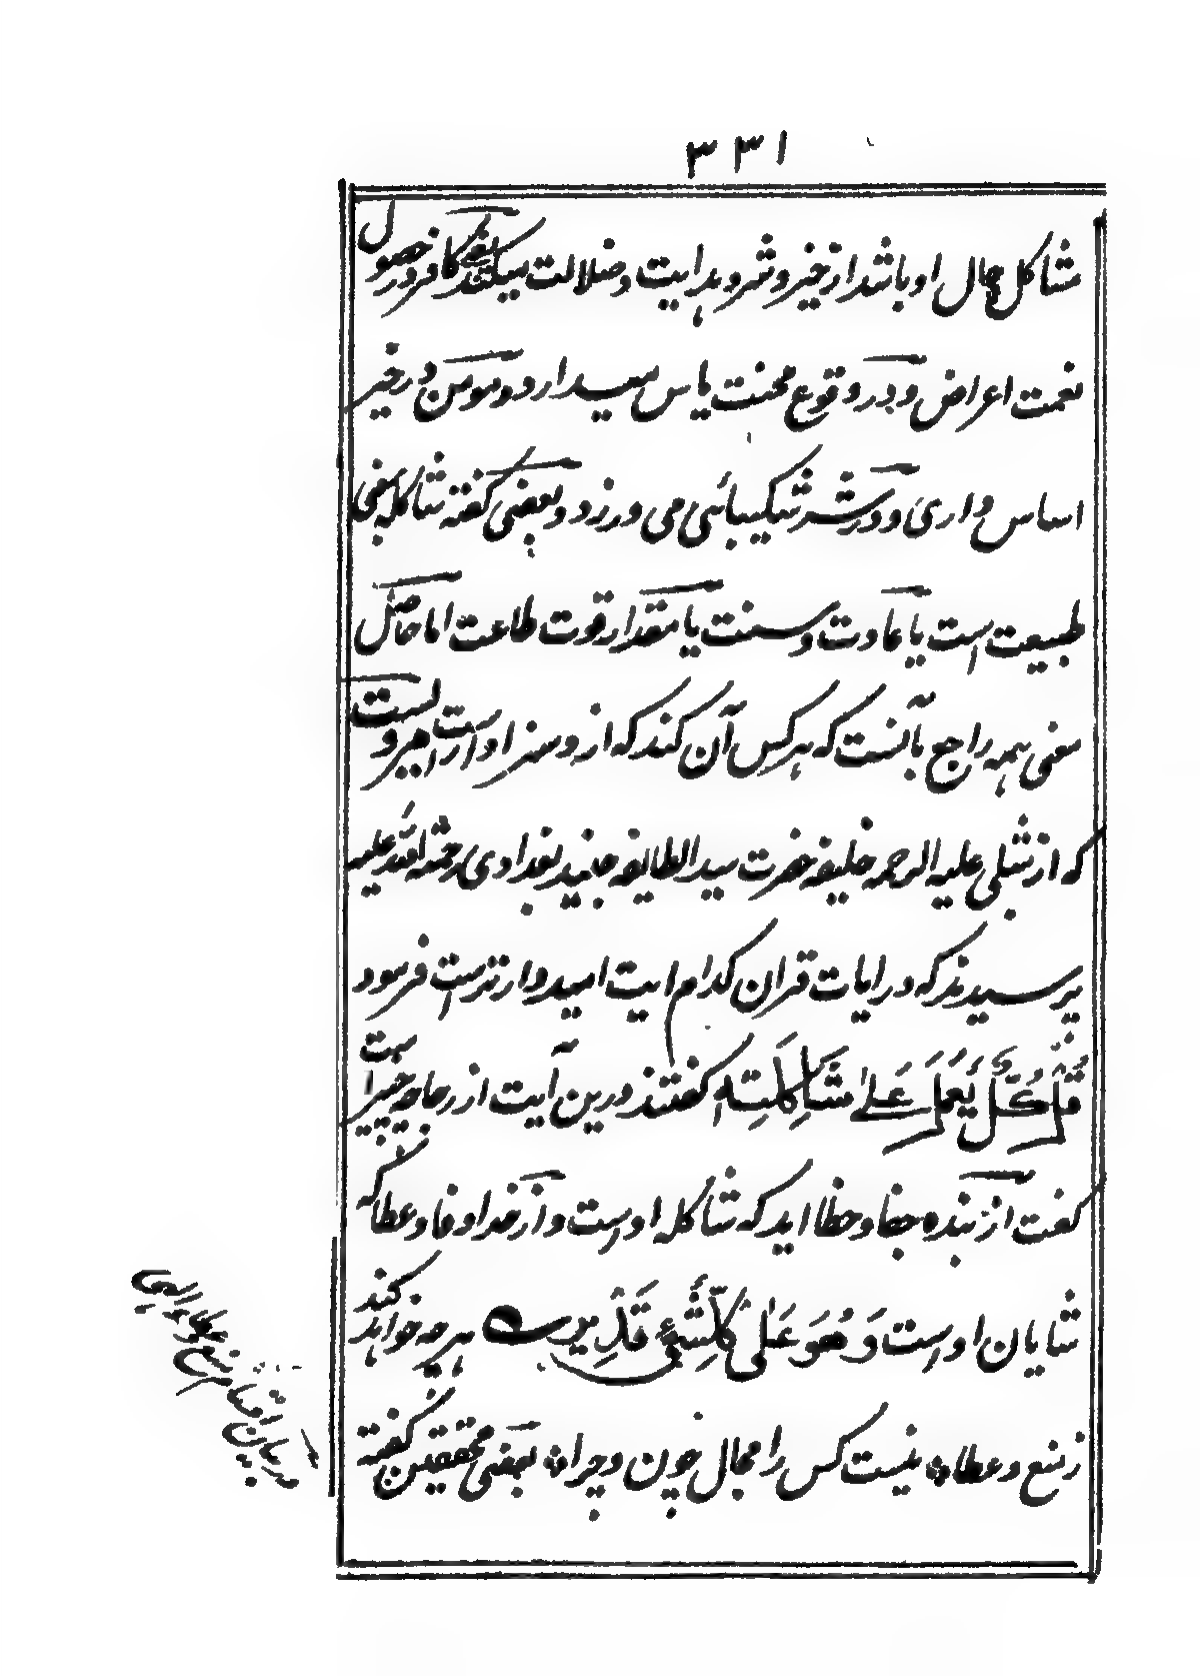 ۳۳۱
مشاکل حال او باشد از خیر و شر و هدایت و ضلالت سیکنند یعنی کافر در حصول
نعمت اعراض و در وقوع محنت یاس میدارد و مومن در خیر
اساس داری و در شر شکیبائی می ورزد و بعضی گفته شاکله بمعنی
طبیعت است یا عادت و سنت یا مقدار قوت طاعت اما حاصل
معنی همه راجع بآنست که هر کس آن کند که از و سزاوار است
که از شبلی علیه الرحمه خلیفه حضرت سید الطایفه جنید بغدادی رحمة الله علیه
پرسیدند که در ایات قران کدام ایت امیدوار ترست فرمود
قُلْ كُلٌّ يَعْمَلُ عَلىٰ شَاكِلَتِهِ گفتند درین آیت از رجا چه چیز است
گفت از بنده جفا و خطا اید که شاکله اوست و از خدا وفا و عطا که
شایان اوست وَهُوَ عَلىٰ كُلِّ شَيْءٍ قَدِيرٌ هر چه خواهد کند
زمنع و عطا ٭ نیست کس را مجال چون و چرا ٭ بعضی محققین گفته
در بیان منع و عطاء الهی